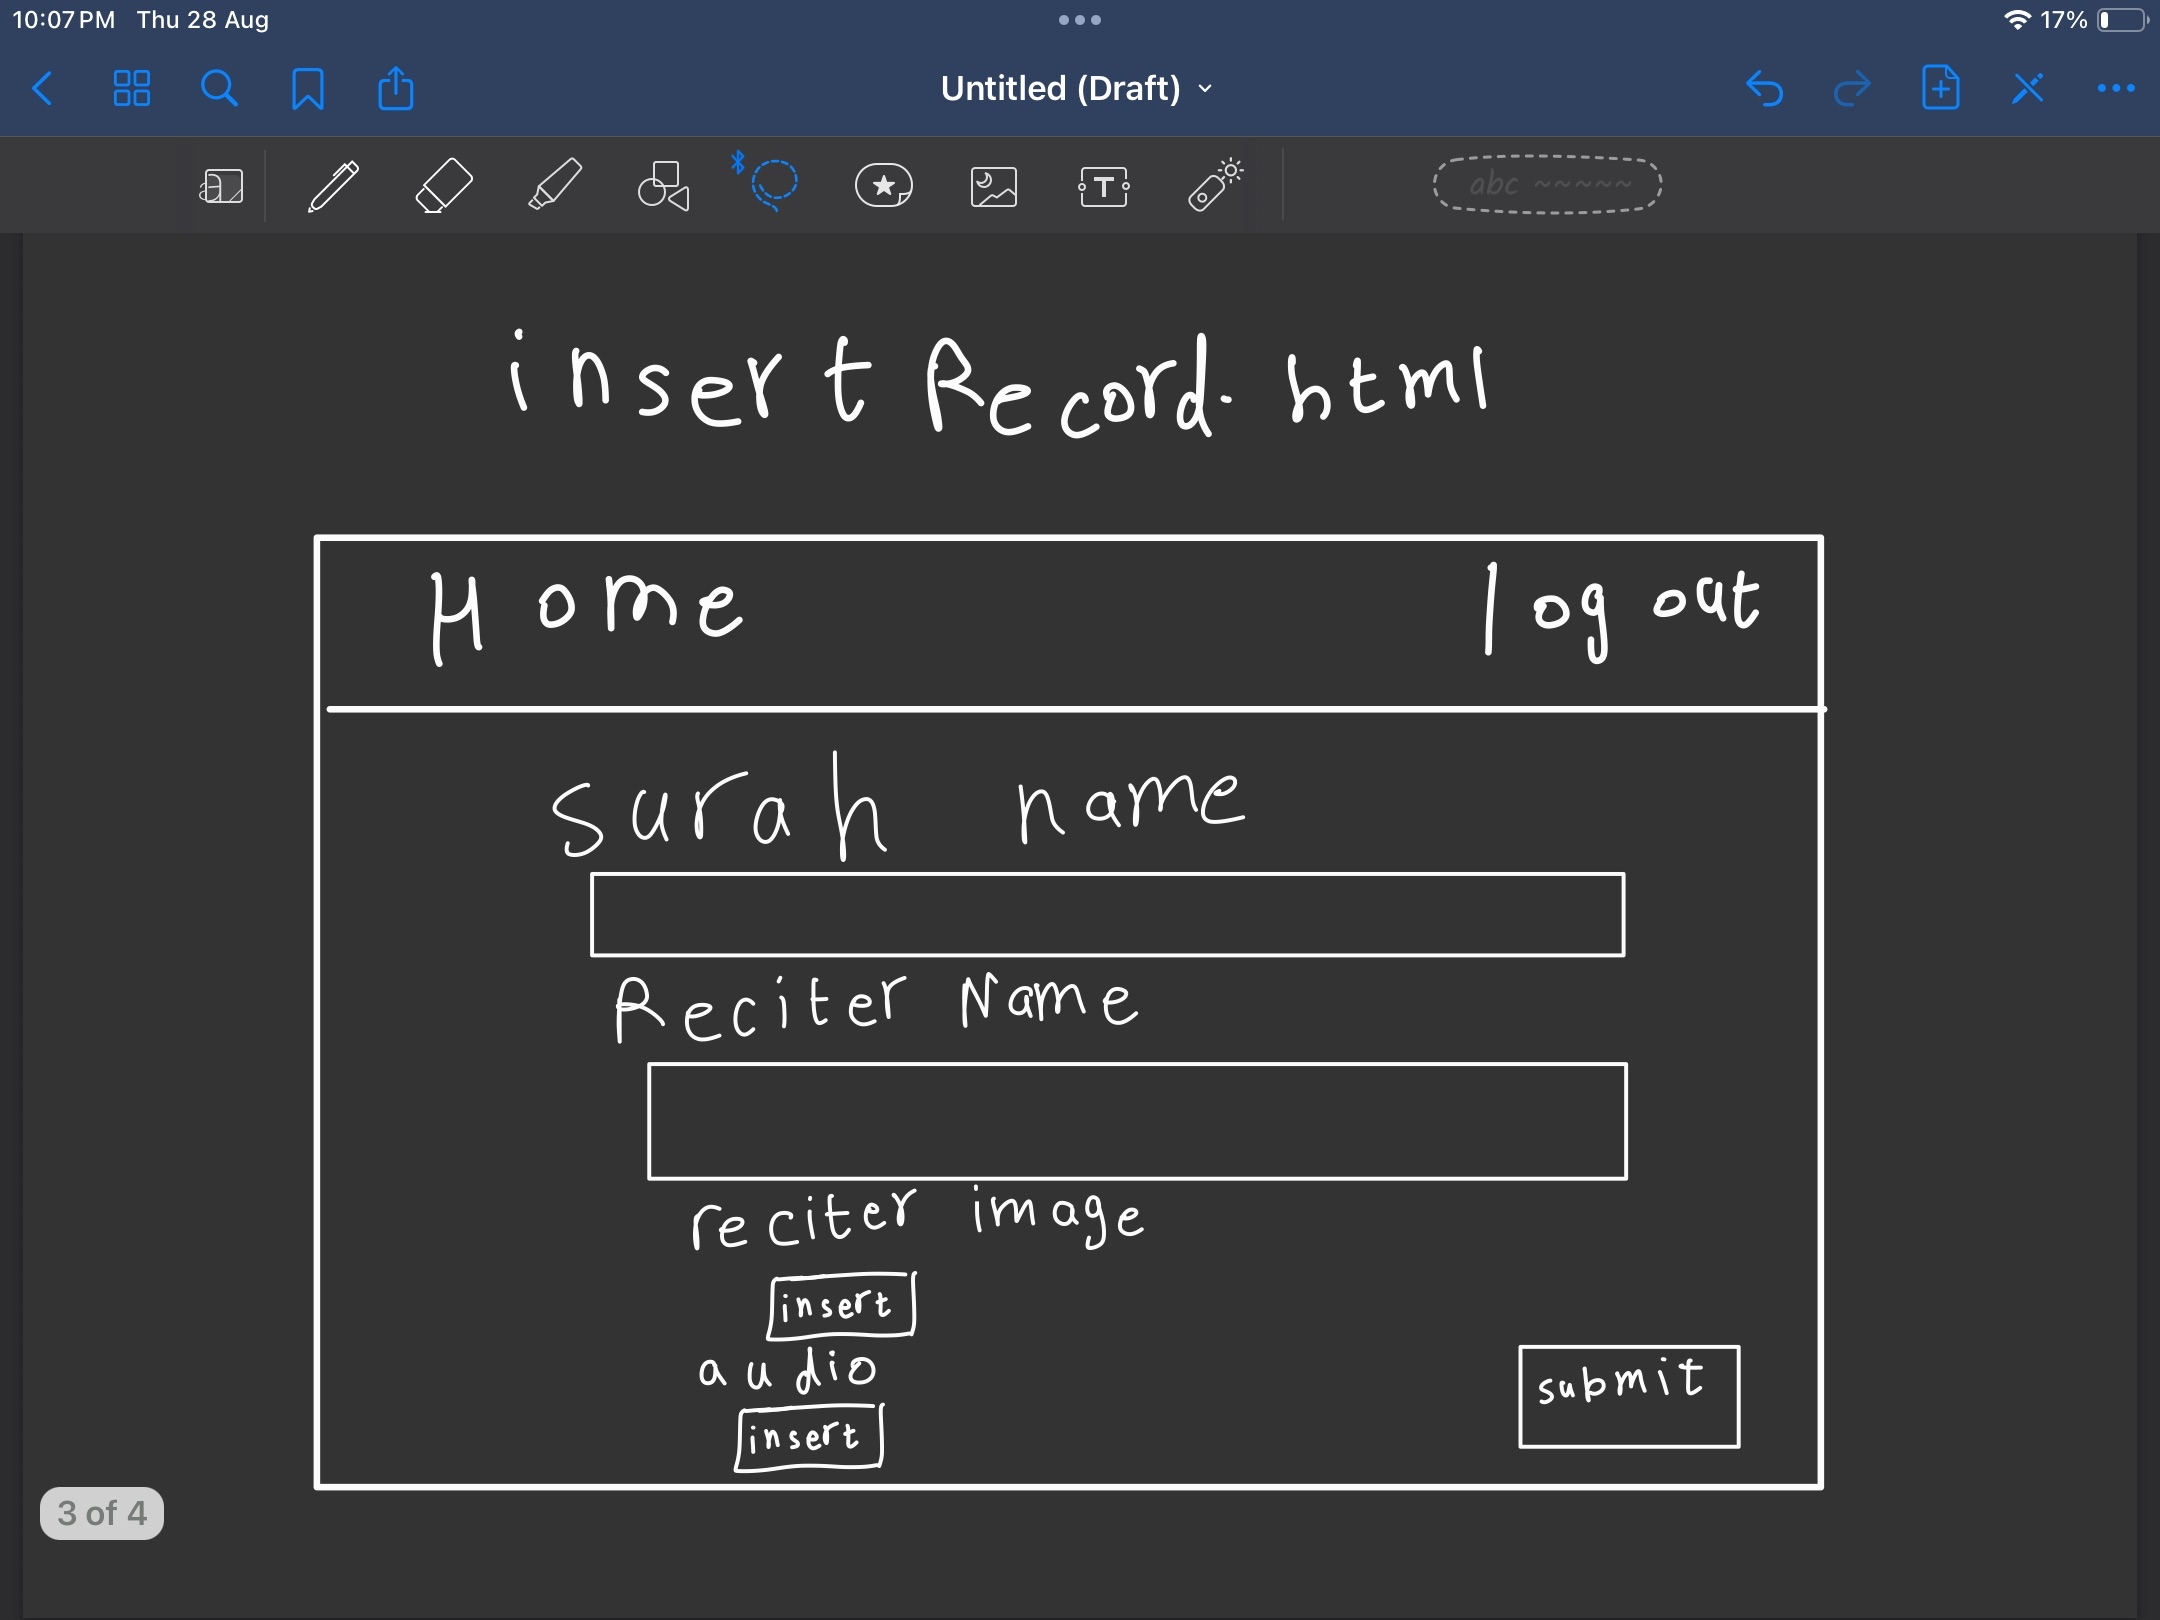 10:07 PM Thu 28 Aug
17%
Untitled (Draft)
abc
insert Record.html
Home
log out
surah name
Reciter Name
reciter image
insert
audio
insert
submit
3 of 4